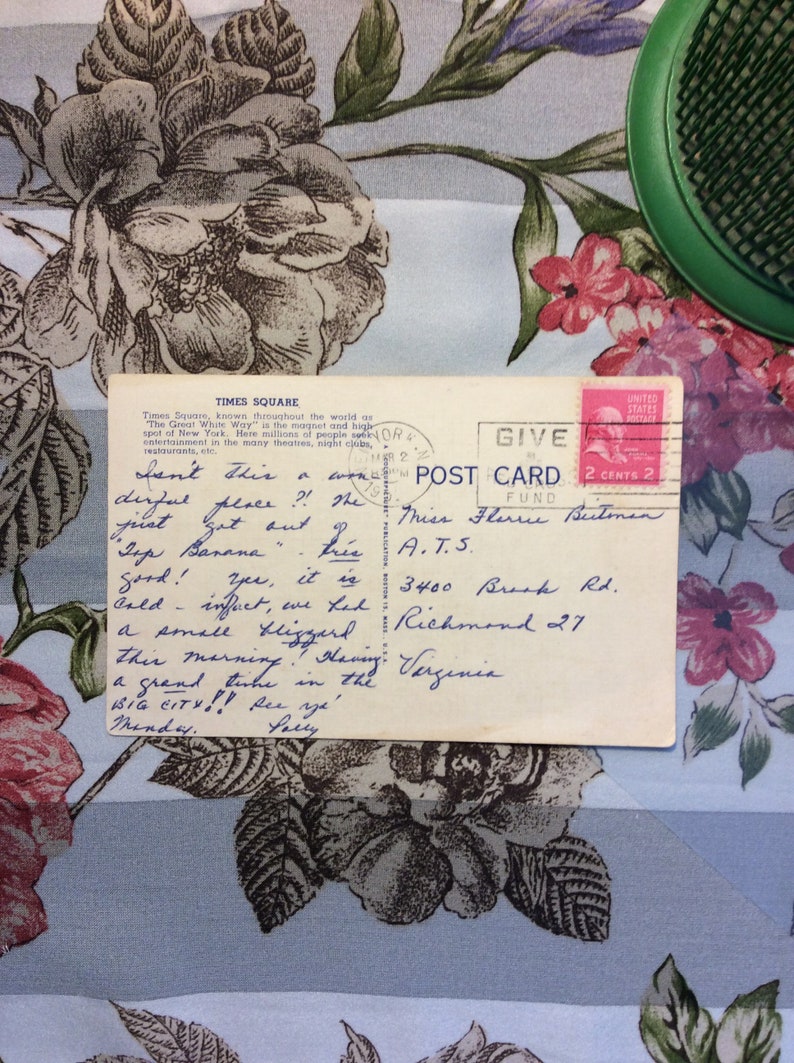 TIMES SQUARE
Times Square, known throughout the world as
"The Great White Way" is the magnet and high
spot of New York. Here millions of people seek
entertainment in the many theatres, night clubs,
restaurants, etc.
Isn't this a won
derful place?! We
just got out of
"Top Banana" - très
good! Yes, it is
cold - infact, we had
a small blizzard
this morning! Having
a grand time in the
BIG CITY!! See ya'
Monday. Polly
A "COLOURPICTURE" PUBLICATION, BOSTON 15, MASS., U.S.A.
YORK, N
MAR 2
PM
19
GIVE
FUND
POST CARD
UNITED
STATES
POSTAGE
2 CENTS 2
Miss Florrie Butman
A.T.S.
3400 Brook Rd.
Richmond 27
Virginia